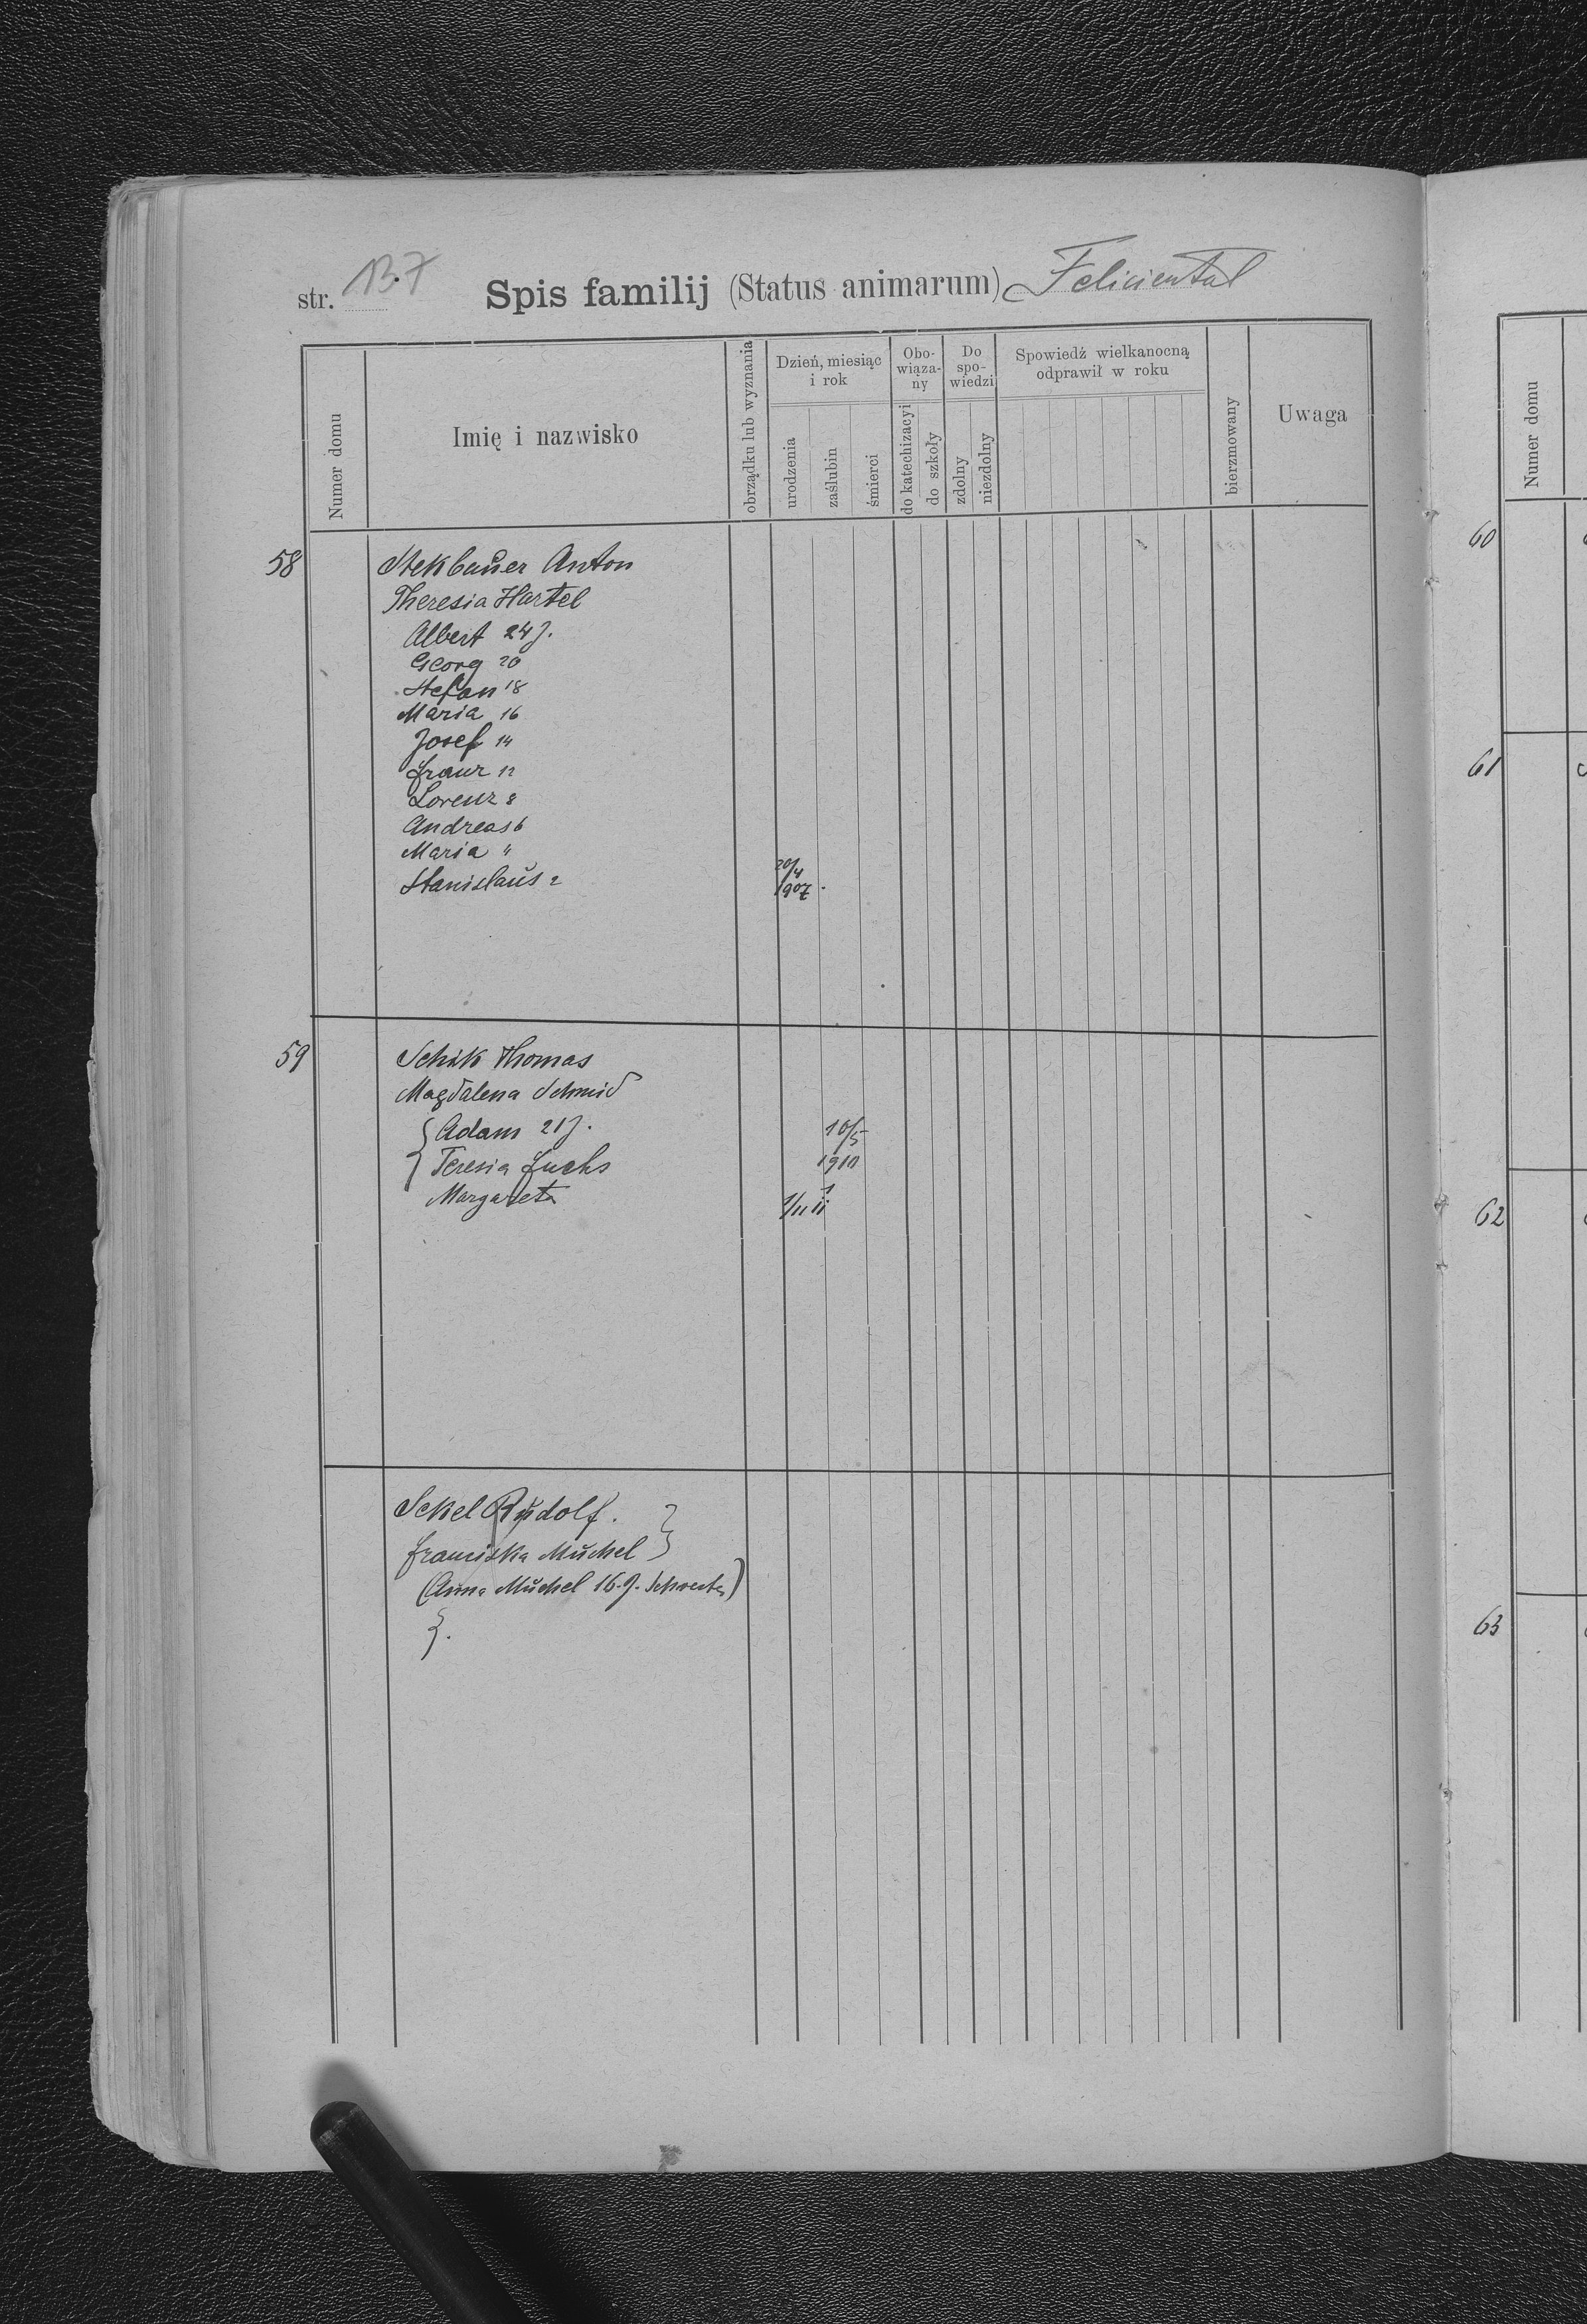 str. 137
Spis familij (Status animarum) Feliciental
Numer domu
Imię i nazwisko
obrządku lub wyznania
Dzień, miesiąc i rok
urodzenia
zaślubin
śmierci
Obo-
wiąza-
ny
do katechizacyi
do szkoły
Do
spo-
wiedzi
zdolny
niezdolny
Spowiedź wielkanocną
odprawił w roku
bierzmowany
Uwaga
58 Stekbaŭer Anton
Theresia Hartel
Albert 24 J.
Georg 20
Stefan 18
Maria 16
Josef 14
Franz 12
Lorenz 8
Andreas 6
Maria "
Stanislaŭs 2 20/4 1907.
59 Schik Thomas
Magdalena Schmid
Adam 21 J. 10/5
Teresia Fuchs 1910
Margareta 1/11 11
Sekel Rudolf.
Franciska Mŭchel
(Anna Mŭchel 16. J. Schwester)
Numer domu
60
61
62
63